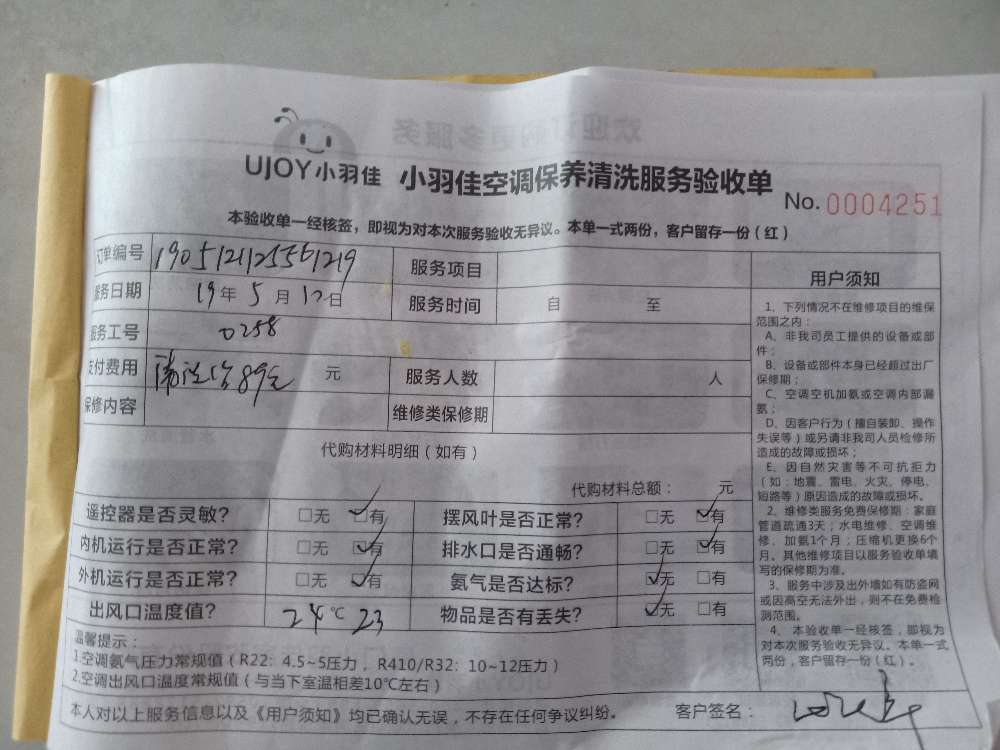 UJOY小羽佳 小羽佳空调保养清洗服务验收单
No. 0004251
本验收单一经核签，即视为对本次服务验收无异议。本单一式两份，客户留存一份（红）
订单编号 1905121125561219 服务项目
服务日期 19年5月12日 服务时间 自 至
服务工号 0258
支付费用 清洗 89元 元 服务人数 人
保修内容 维修类保修期
代购材料明细（如有）
代购材料总额： 元
遥控器是否灵敏? □无 ☑有 摆风叶是否正常? □无 ☑有
内机运行是否正常? □无 ☑有 排水口是否通畅? □无 ☑有
外机运行是否正常? □无 ☑有 氨气是否达标? ☑无 □有
出风口温度值? 24℃ 23 物品是否有丢失? ☑无 □有
温馨提示：
1.空调氨气压力常规值（R22：4.5~5压力， R410/R32：10~12压力）
2.空调出风口温度常规值（与当下室温相差10℃左右）
本人对以上服务信息以及《用户须知》均已确认无误，不存在任何争议纠纷。 客户签名：
用户须知
1、下列情况不在维修项目的维保
范围之内：
A、非我司员工提供的设备或部
件；
B、设备或部件本身已经超过出厂
保修期；
C、空调空机加氨或空调内部漏
氨；
D、因客户行为（擅自装卸、操作
失误等）或另请非我司人员检修所
造成的故障或损坏；
E、因自然灾害等不可抗拒力
（如：地震、雷电、火灾、停电、
短路等）原因造成的故障或损坏。
2、维修类服务免费保修期：家庭
管道疏通3天；水电维修、空调维
修、加氨1个月；压缩机更换6个
月。其他维修项目以服务验收单填
写的保修期为准。
3、服务中涉及出外墙如有防盗网
或因高空无法外出，则不在免费检
测范围。
4、本验收单一经核签，即视为
对本次服务验收无异议。本单一式
两份，客户留存一份（红）。